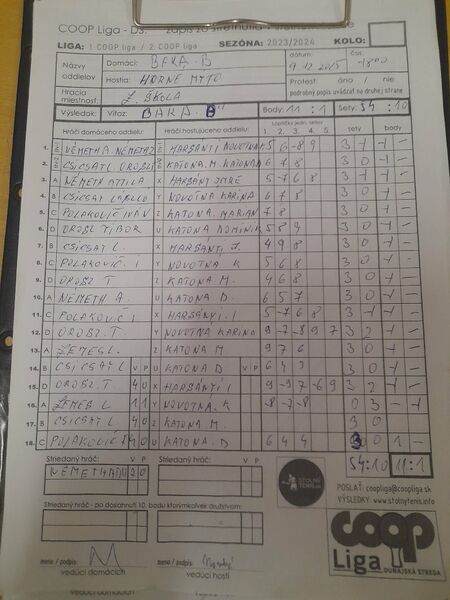 COOP Liga - Ds. zápis zo stretnutia
LIGA: 1 COOP liga / 2. COOP liga SEZÓNA: 2023/2024 KOLO:
Názvy oddielov Domáci: BAKA-B dátum: čas:
Hostia: HORNÉ MÝTO Protest: áno / nie
Hracia miestnosť: Z. ŠKOLA podrobný popis uvádzať na druhej strane
Výsledok: Víťaz: BAKA "B" Body: 11 : 1 Sety: 54 : 10
Hráči domáceho oddielu: Hráči hosťujúceho oddielu: sety body
1. 2. 3. 4. 5.
1. NÉMETH A NÉMETH Z HARSÁNYI NOVOTNÁ K 5 6 -8 9 3 1 1 -
2. CSICSAY L OROSZ T KATONA.M.KATONA 6 7 8 3 0 1 -
3. A NÉMETH ATTILA X HARSÁNYI IMRE 5 -7 6 8 3 1 1 -
4. B CSICSAY LÁSZLO Y NOVOTNÁ KARINA 6 7 8 3 0 1 -
5. C POLAKOVIČ IVÁN Z KATONA MARIAN 7 8 3 0 1 -
6. D OROSZ TIBOR U KATONA DOMINIK 5 8 9 3 0 1 -
7. B CSICSAY L. X HARSÁNYI I. 4 9 8 3 0 1 -
8. C POLAKOVIČ. I Y NOVOTNÁ K 5 6 8 3 0 1 -
9. D OROSZ T Z KATONA M. 4 6 8 3 0 1 -
10. A NÉMETH A. U KATONA D. 6 5 7 3 0 1 -
11. C POLAKOVIČ I X HARSÁNYI. I 5 -7 6 8 3 1 1 -
12. D OROSZ. T. Y NOVOTNÁ KARINA 9 -7 -8 9 7 3 2 1 -
13. A ZEMES L. Z KATONA M 9 7 6 3 0 1 -
14. B CSICSAY L V P U KATONA D V P 6 4 3 3 0 1 -
15. D OROSZ.T. 4 0 X HARSÁNYI I 9 -9 7 -6 9 3 2 1 -
16. A ZEMES L 1 1 Y NOVOTNÁ.K -8 -7 -8 0 3 - 1
17. B CSICSAY L 4 0 Z KATONA.M. 3 0
18. C POLAKOVIČ I 4 0 U KATONA.D 6 4 4 3 0 1 -
Striedaný hráč: V P Striedaný hráč: V P 54:10 11:1
NÉMETH 2 0
STOLNÝ TENIS
POSLAŤ: coopliga@coopliga.sk
VÝSLEDKY: www.stolnytenis.info
Striedaný hráč - po dosiahnutí 10. bodu ktorýmkoľvek družstvom:
V P V P
meno / podpis: meno / podpis:
vedúci domácich vedúci hostí
coop
Liga
DUNAJSKÁ STREDA